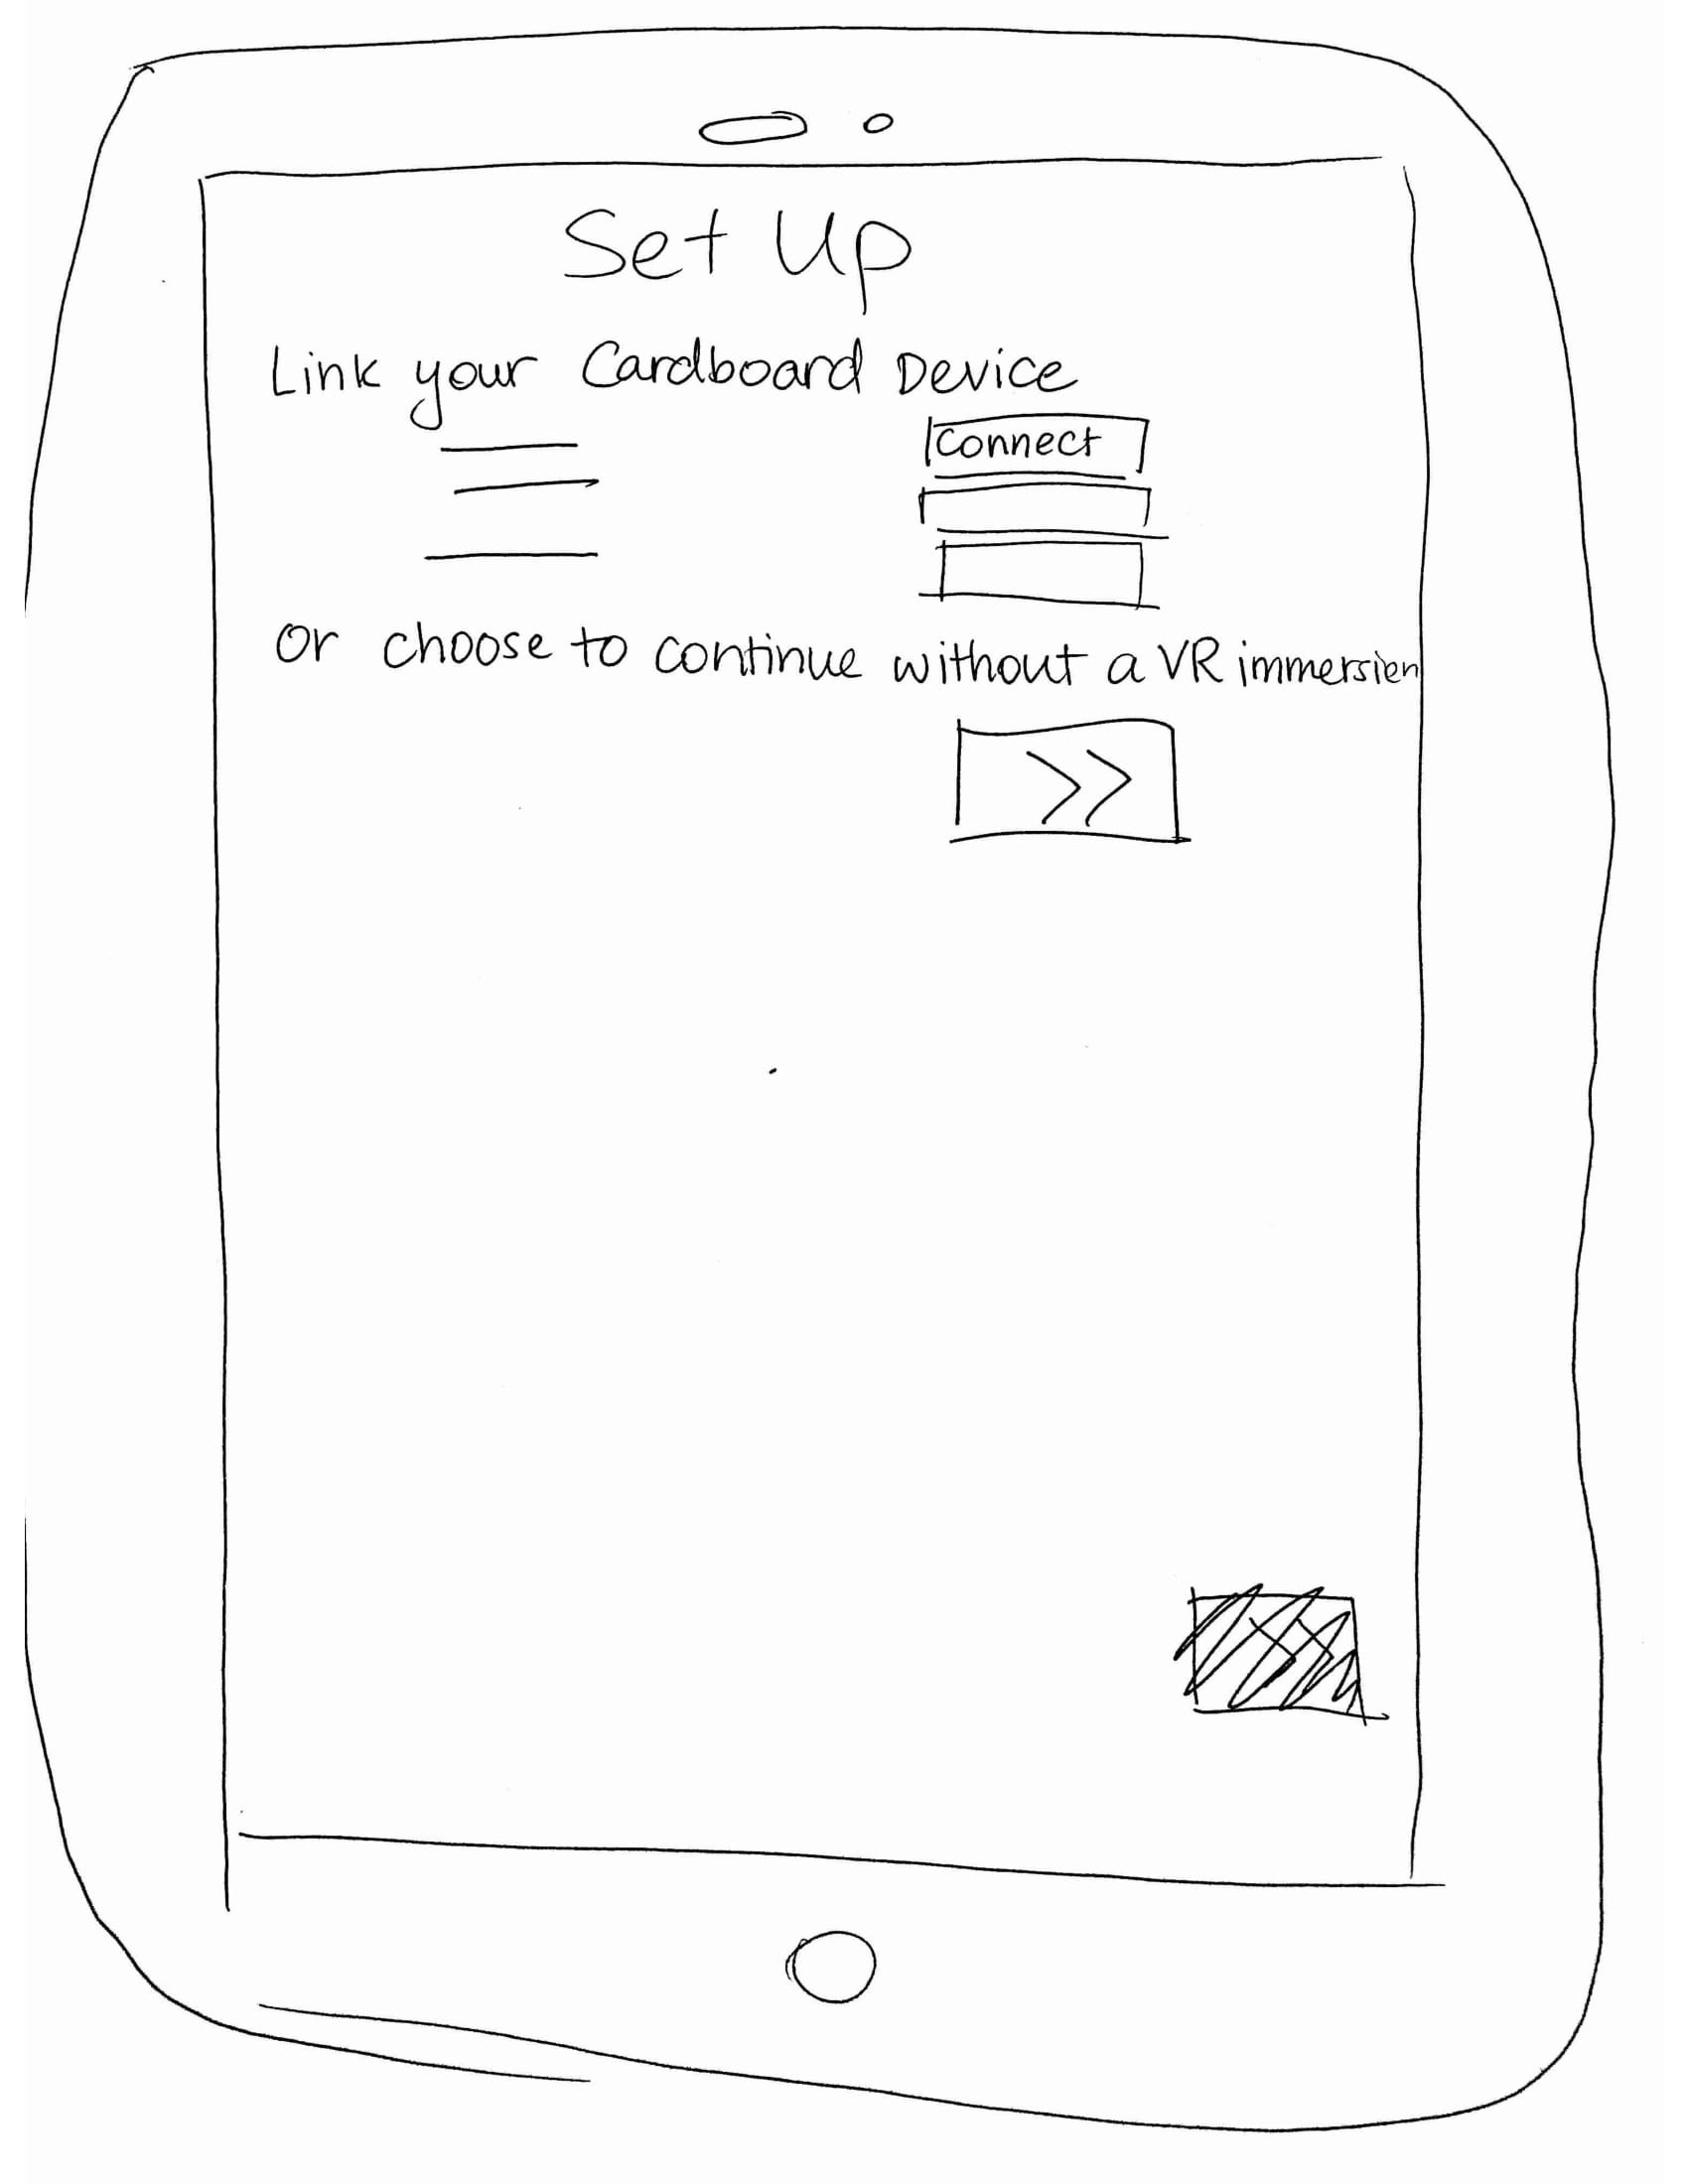 Set Up
Link your Cardboard Device
Connect
Or choose to continue without a VR immersion
>>